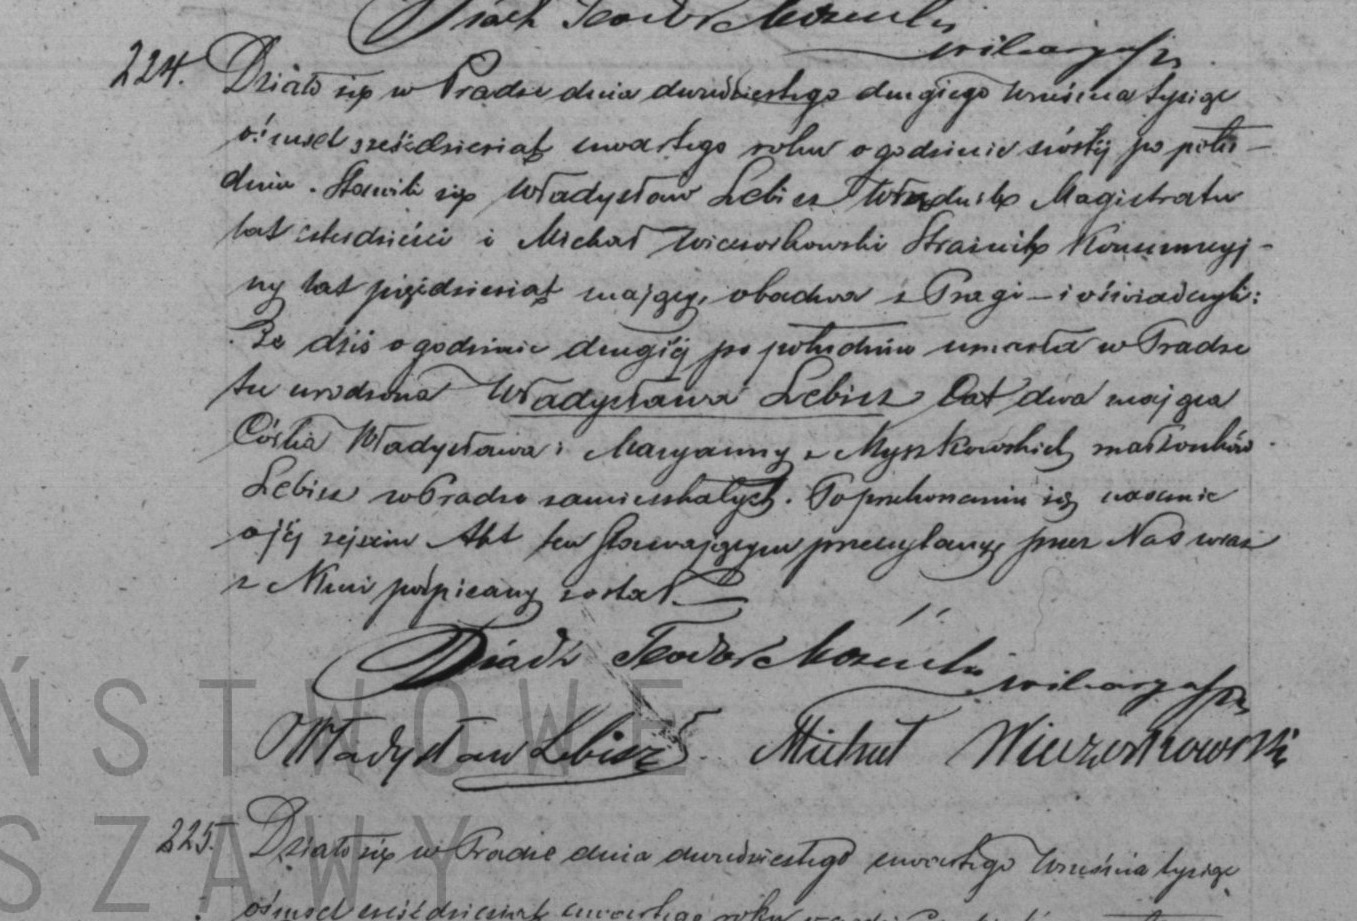 Teodor Mozeński
wikaryusz
224. Działo się w Pradze dnia dwudziestego drugiego Września tysiąc
ośmset sześćdziesiąt czwartego roku o godzinie szóstéj po połu-
dniu. Stawili się Władysław Lebisz Urzędnik Magistratu
lat czterdzieści i Michał Wieczorkowski Strażnik Konsumcyj-
ny lat pięćdziesiąt mający, obadwa z Pragi – i oświadczyli:
Że dziś o godzinie drugiéj po południu umarła w Pradze
tu urodzona Władysława Lebisz lat dwa mająca
Córka Władysława i Maryanny z Myszkowskich małżonków
Lebisz w Pradze zamieszkałych. Po przekonaniu się naocznie
o jéj zejściu Akt ten stawającym przeczytany, przez Nas wraz
z Niemi podpisany został.
Teodor Mozeński
wikaryusz
Władysław Lebisz Michał Wieczorkowski
225. Działo się w Pradze dnia dwudziestego czwartego Września tysiąc
ośmset sześćdziesiąt czwartego roku
ŃSTWOWE
SZAWY